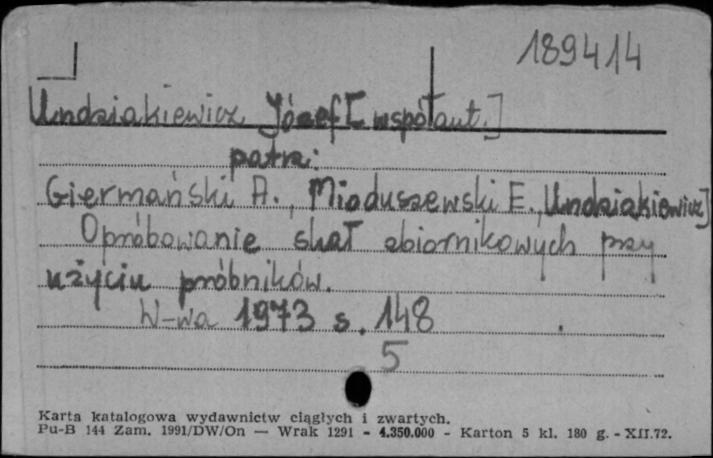 189414
Undziakiewicz Józef [współaut.]
patrz:
Giermański A., Mioduszewski E., Undziakiewicz J
Opróbowanie skał zbiornikowych przy
użyciu próbników.
W-wa 1973 s. 148
5
Karta katalogowa wydawnictw ciągłych i zwartych.
Pu-B 144 Zam. 1991/DW/On — Wrak 1291 - 4.350.000 - Karton 5 kl. 180 g. - XII.72.